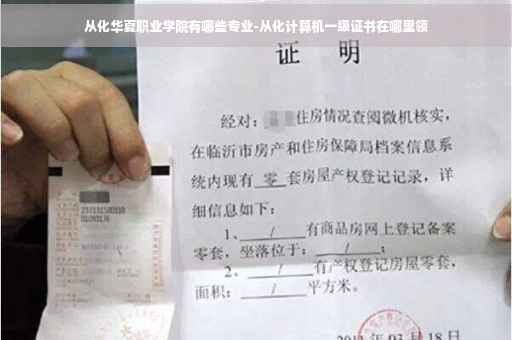 从化华夏职业学院有哪些专业-从化计算机一级证书在哪里领
证 明
经对:住房情况查阅微机核实,
在临沂市房产和住房保障局档案信息系
统内现有 零 套房屋产权登记记录,详
细信息如下:
1、 / 有商品房网上登记备案
零套,坐落位于: / ;
2、 / 有产权登记房屋零套,
面积: / 平方米。